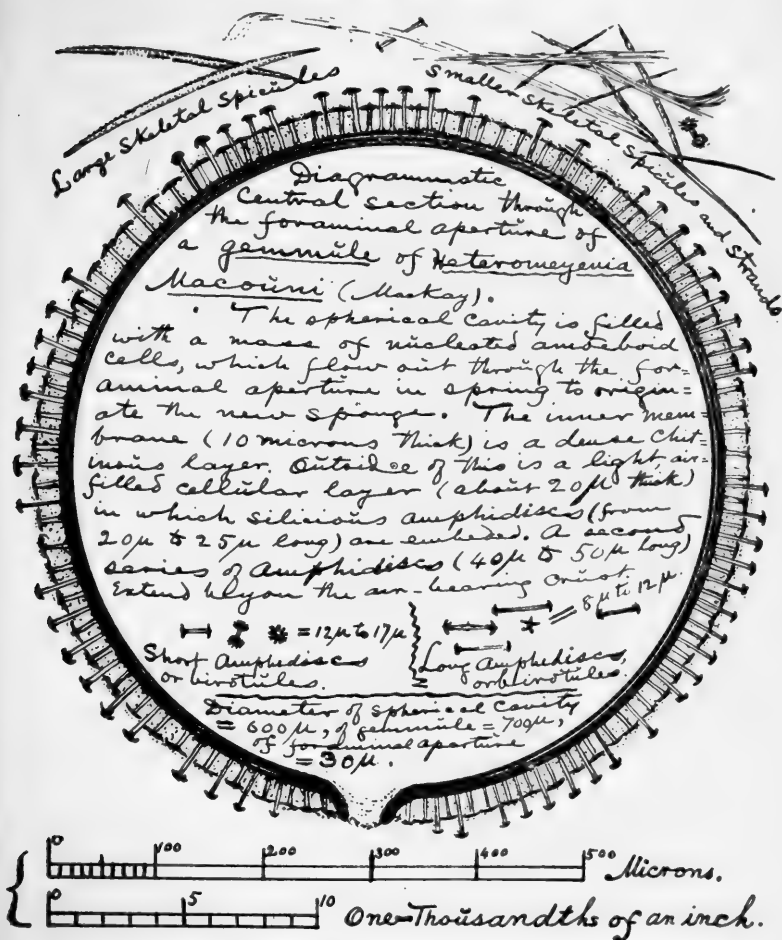 Large Skeletal Spicules
Smaller Skeletal Spicules and Strands
Diagrammatic
Central section through
the foraminal aperture of
a gemmule of Heteromeyenia
Macouni (MacKay).
The spherical cavity is filled
with a mass of nucleated amoeboid
cells, which flow out through the for=
aminal aperture in spring to origin=
ate the new sponge. The inner mem=
brane (10 microns thick) is a dense chit=
inous layer. Outside of this is a light air=
filled cellular layer (about 20μ thick)
in which silicious amphidiscs (from
20μ to 25μ long) are embeded. A second
series of amphidiscs (40μ to 50μ long)
Extend beyon the air-bearing crust.
= 12μ to 17μ
= 8μ to 12μ.
Short Amphidiscs
or birotules.
Long Amphediscs,
or birotules.
Diameter of spherical cavity
= 600μ, of gemmule = 700μ,
of foraminal aperture
= 30μ.
0 100 200 300 400 500 Microns.
0 5 10 One=Thousandths of an inch.